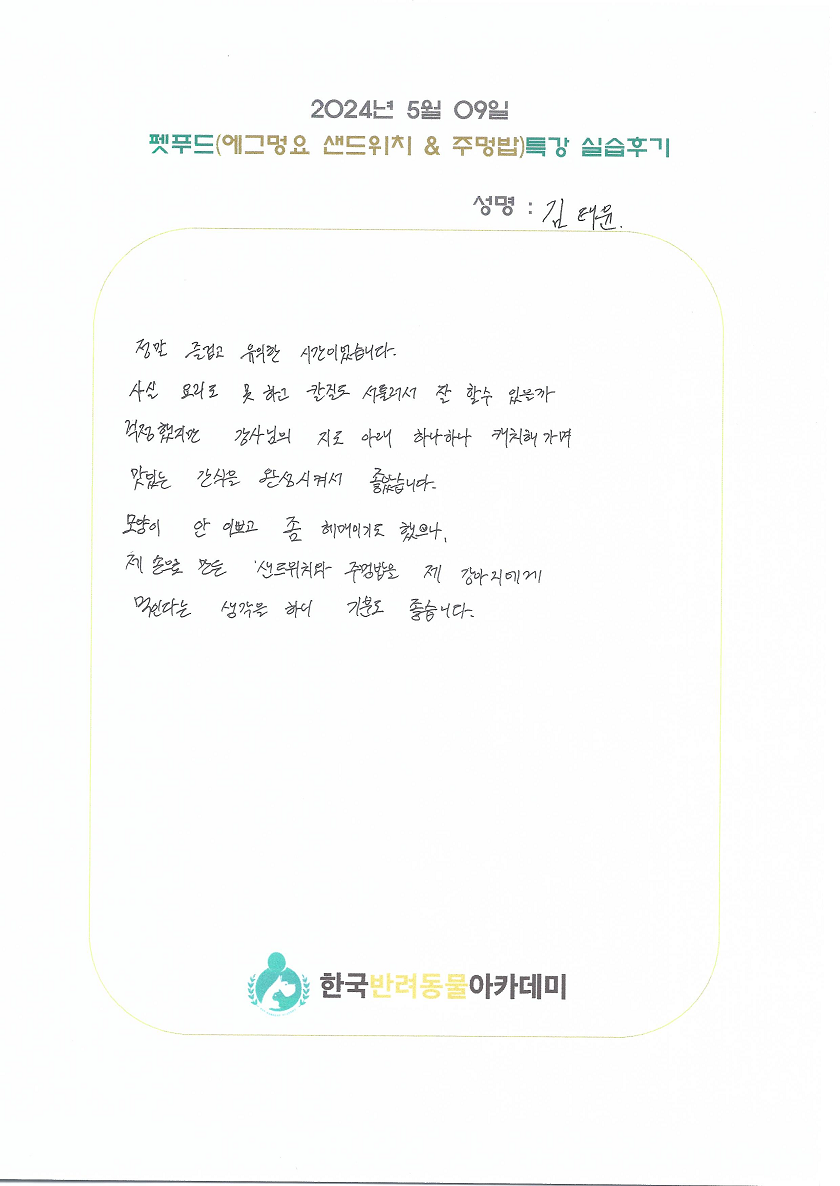 2024년 5월 09일
펫푸드(에그멍요 샌드위치 & 주멍밥)특강 실습후기
성명 : 김태윤.
정말 즐겁고 유의한 시간이었습니다.
사실 요리도 못 하고 칼질도 서툴러서 잘 할수 있을까
걱정했지만 강사님의 지도 아래 하나하나 캐치해가며
맛있는 간식을 완성시켜서 좋았습니다.
모양이 안 이쁘고 좀 헤매이기도 했으나,
제 손으로 만든 샌드위치와 주멍밥을 제 강아지에게
먹인다는 생각을 하니 기분도 좋습니다.
한국반려동물아카데미